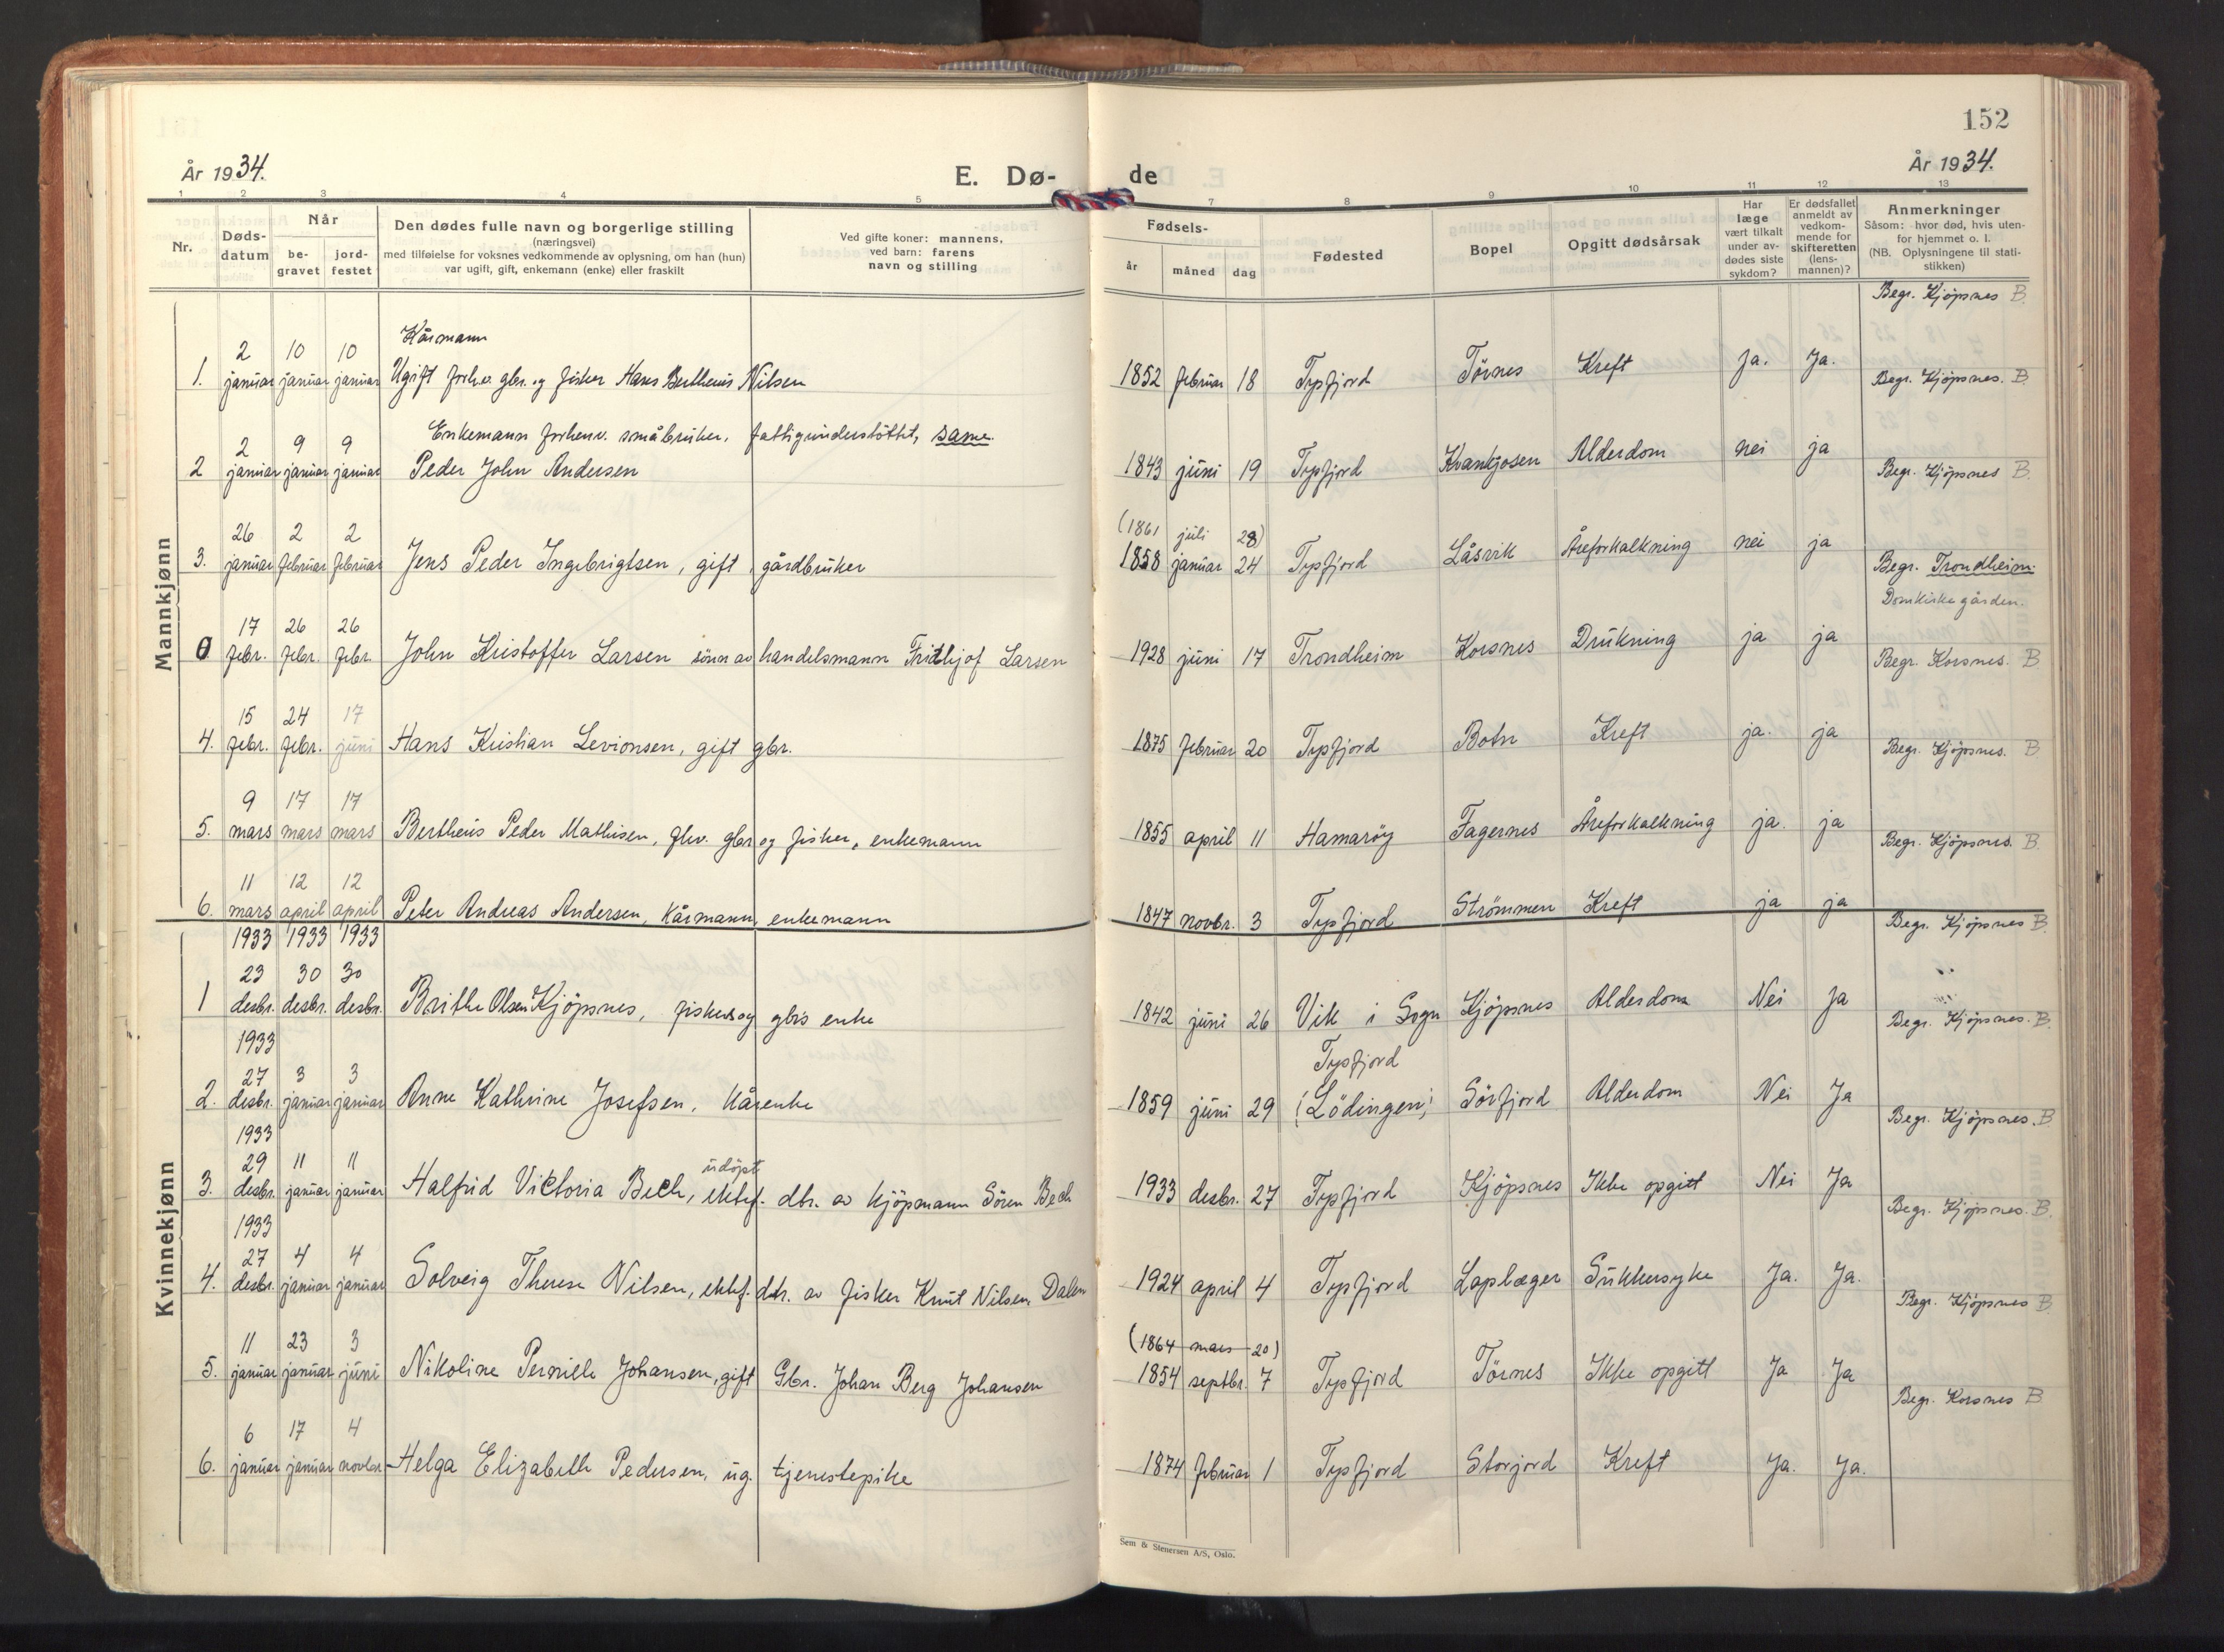 152
År 1934.
E. Dø-
de
År 1934.
1 2 3 4 5 7 8 9 10 11 12 13
Nr.
Døds-
datum
Når
be-
gravet
jord-
festet
Den dødes fulle navn og borgerlige stilling
(næringsvei)
med tilføielse for voksnes vedkommende av oplysning, om han (hun)
var ugift, gift, enkemann (enke) eller fraskilt
Ved gifte koner: mannens,
ved barn: farens
navn og stilling
Fødsels-
år måned dag
Fødested
Bopel
Opgitt dødsårsak
Har
læge
vært tilkalt
under av-
dødes siste
sykdom?
Er dødsfallet
anmeldt av
vedkom-
mende for
skifteretten
(lens-
mannen)?
Anmerkninger
Såsom: hvor død, hvis uten-
for hjemmet o. l.
(NB. Oplysningene til stati-
stikken)
Mannkjønn
Begr. Kjöpsnes B.
Kårmann
2 10 10
1. januar januar januar Ugift forh.v. gbr. og fisker Hans Bertheus Nilsen 1852 februar 18 Tysfjord Törnes Kreft Ja. Ja.
Begr. Kjöpsnes. B.
Enkemann forhenv. småbruker, fattigunderstöttet, same.
2 9 9
2 januar januar januar Peder John Andersen 1843 juni 19 Tysfjord Kvankjosen Alderdom nei ja
Begr. Kjöpsnes B.
26 2 2
(1861 juli 28)
3. januar februar februar Jens Peder Ingebrigtsen, gift, gårdbruker 1858 januar 24 Tysfjord Låsvik Åreforkalkning nei ja
Begr. Trondheim.
Domkirkegården.
17 26 26
0 febr. febr. febr. John Kristoffer Larsen sönn av handelsmann Frithjof Larsen 1928 juni 17 Trondheim Korsnes Drukning ja ja
Begr. Korsnes. B
15 24 17
4. febr. febr. juni Hans Kristian Levionsen, gift gbr. 1875 februar 20 Tysfjord Botn Kreft ja. ja
Begr. Kjöpsnes. B
9 17 17
5. mars mars mars Bertheus Peder Mathisen, fhv. gbr. og fisker, enkemann 1855 april 11 Hamaröy Fagernes Åreforkalkning ja. ja
Begr. Kjöpsnes. B.
11 12 12
6. mars april april Peter Andreas Andersen, kårmann, enkemann 1847 novbr. 3 Tysfjord Strömmen Kreft ja ja
Kvinnekjønn
Begr. Kjöpsnes B.
1933 1933 1933
23 30 30
1 desbr. desbr. desbr. Brithe Olsen Kjöpsnes, fisker og gbrs enke 1842 juni 26 Vik i Sogn Kjöpsnes Alderdom Nei Ja
Begr. Kjöpsnes. B.
1933
Tysfjord
27 3 3
2. desbr. januar januar Anne Kathrine Josefsen, kårenke 1859 juni 29 (Lödingen) Sörfjord Alderdom Nei Ja
Begr. Kjöpsnes. B
1933
29 11 11
udöpt
3. desbr. januar januar Halfrid Victoria Bech, ektef. dtr. av kjöpmann Sören Bech 1933 desbr. 27 Tysfjord Kjöpsnes Ikke opgitt Nei Ja
Begr. Kjöpsnes. B.
1933
27 4 4
4. desbr. januar januar Solveig Therese Nilsen, ektef. dtr. av fisker Knut Nilsen, Dalen 1924 april 4 Tysfjord Laplæger Sukkersyke Ja. Ja.
Begr. Kjöpsnes B
11 23 3
(1864 mars 20)
5. januar januar juni Nikoline Pernille Johansen, gift Gbr. Johan Berg Johansen 1854 septbr. 7 Tysfjord Törnes Ikke opgitt Ja Ja
Begr. Korsnes B
6 17 4
6. januar januar novbr Helga Elizabeth Pedersen, ug. tjenestepike 1874 februar 1 Tysfjord Storjord Kreft Ja. Ja.
Sem & Stenersen A/S, Oslo.